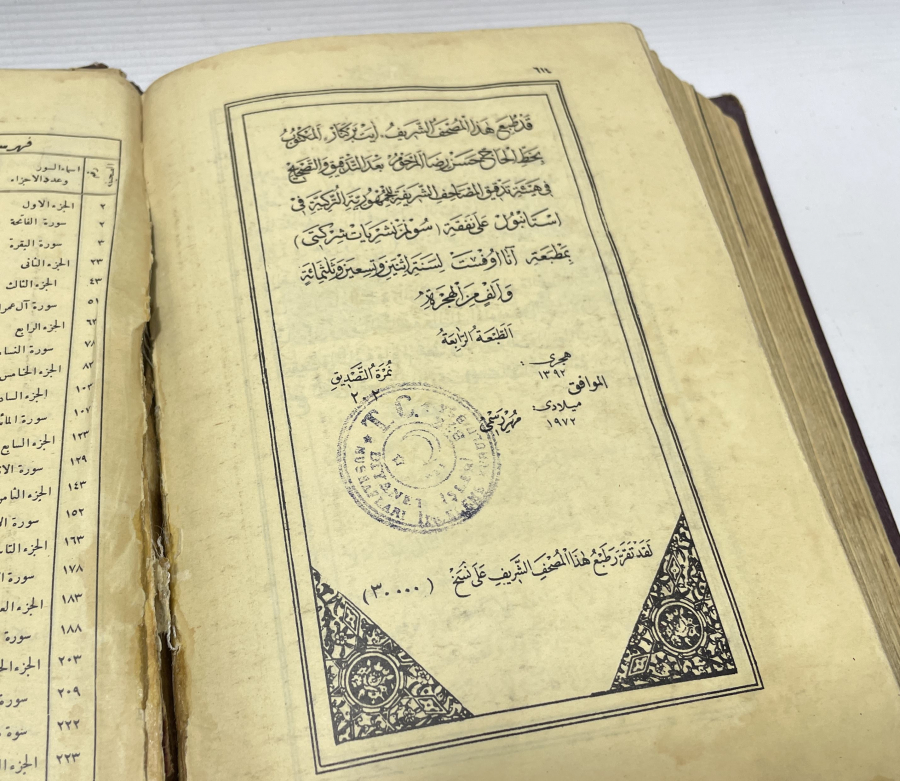 ٦١٤
قَدْ طُبِعَ هٰذَا الْمُصْحَفُ الشَّرِيفُ، آيَتْ بَرْكَنَارْ، اَلْمَكْتُوبُ
بِخَطِّ الْحَاجِّ حَسَنْ رِضَا الْمَرْحُومُ بَعْدَ التَّدْقِيقِ وَالتَّصْحِيحِ
فِى هَيْئَةِ تَدْقِيقِ الْمَصَاحِفِ الشَّرِيفَةِ لِلْجُمْهُورِيَّةِ التُّرْكِيَّةِ فِى
اِسْتَانْبُولَ عَلَى نَفَقَةِ (سُونْمَزْ نَشْرِيَاتْ شِرْكَتِى)
بِمَطْبَعَةِ آنَا اُوفْسَتْ لِسَنَةِ اِثْنَيْنِ وَتِسْعِينَ وَثَلٰثِمِائَةٍ
وَاَلْفٍ مِنَ الْهِجْرَةِ
اَلطَّبْعَةُ الرَّابِعَةُ
هجرى :
١٣٩٢
الموافق
ميلادى:
١٩٧٢
نُمْرَةُ التَّصْدِيقِ
٢٠٢
مُهْرِ رَسْمِى
T.C.
DİYANET
MUSHAFLARI
لَقَدْ تَقَرَّرَ طَبْعُ هٰذَا الْمُصْحَفِ الشَّرِيفِ عَلَى نُسَخْ (٣٠٠٠٠)
اسماء السور
وعدد الاجزاء
رقم
الصحيفة
الجزء الاول ٢
سورة الفاتحة ٢
سورة البقرة ٣
الجزء الثانى ٢٣
الجزء الثالث ٤٣
سورة آل عمرا ٥١
الجزء الرابع ٦٢
سورة النسا ٧٨
الجزء الخامس ٨٢
الجزء الساد ١٠٢
سورة المائ ١٠٧
الجزء السابع ١٢٣
سورة الان ١٢٩
الجزء الثامن ١٤٣
سورة ١٥٢
الجزء التاس ١٦٣
سورة ١٧٨
الجزء ١٨٣
سورة ١٨٨
الجزء ٢٠٣
سورة ٢٠٩
٢٢٢
الجزء ٢٢٣